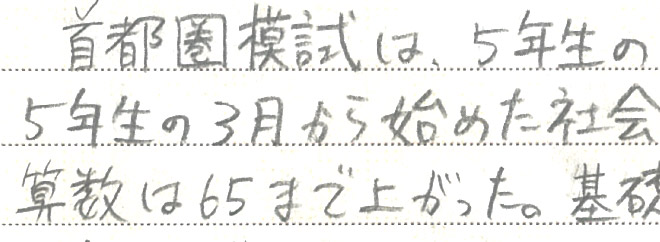 首都圏模試は、5年生の
5年生の3月から始めた社会
算数は65まで上がった。基礎